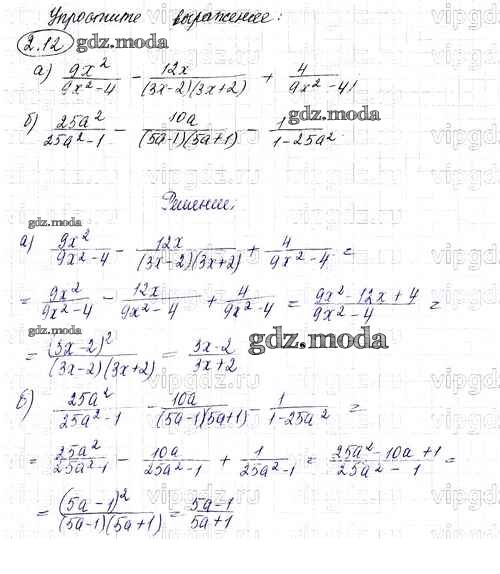 Упростите выражение:
2.12 gdz.moda
а) 9x²/(9x²-4) - 12x/((3x-2)(3x+2)) + 4/(9x²-4)
gdz.moda
б) 25a²/(25a²-1) - 10a/((5a-1)(5a+1)) - 1/(1-25a²)
Решение:
gdz.moda
а) 9x²/(9x²-4) - 12x/((3x-2)(3x+2)) + 4/(9x²-4) =
= 9x²/(9x²-4) - 12x/(9x²-4) + 4/(9x²-4) = (9x²-12x+4)/(9x²-4) =
gdz.moda
= (3x-2)²/((3x-2)(3x+2)) = (3x-2)/(3x+2)
gdz.moda
б) 25a²/(25a²-1) - 10a/((5a-1)(5a+1)) - 1/(1-25a²) =
= 25a²/(25a²-1) - 10a/(25a²-1) + 1/(25a²-1) = (25a²-10a+1)/(25a²-1) =
= (5a-1)²/((5a-1)(5a+1)) = (5a-1)/(5a+1)